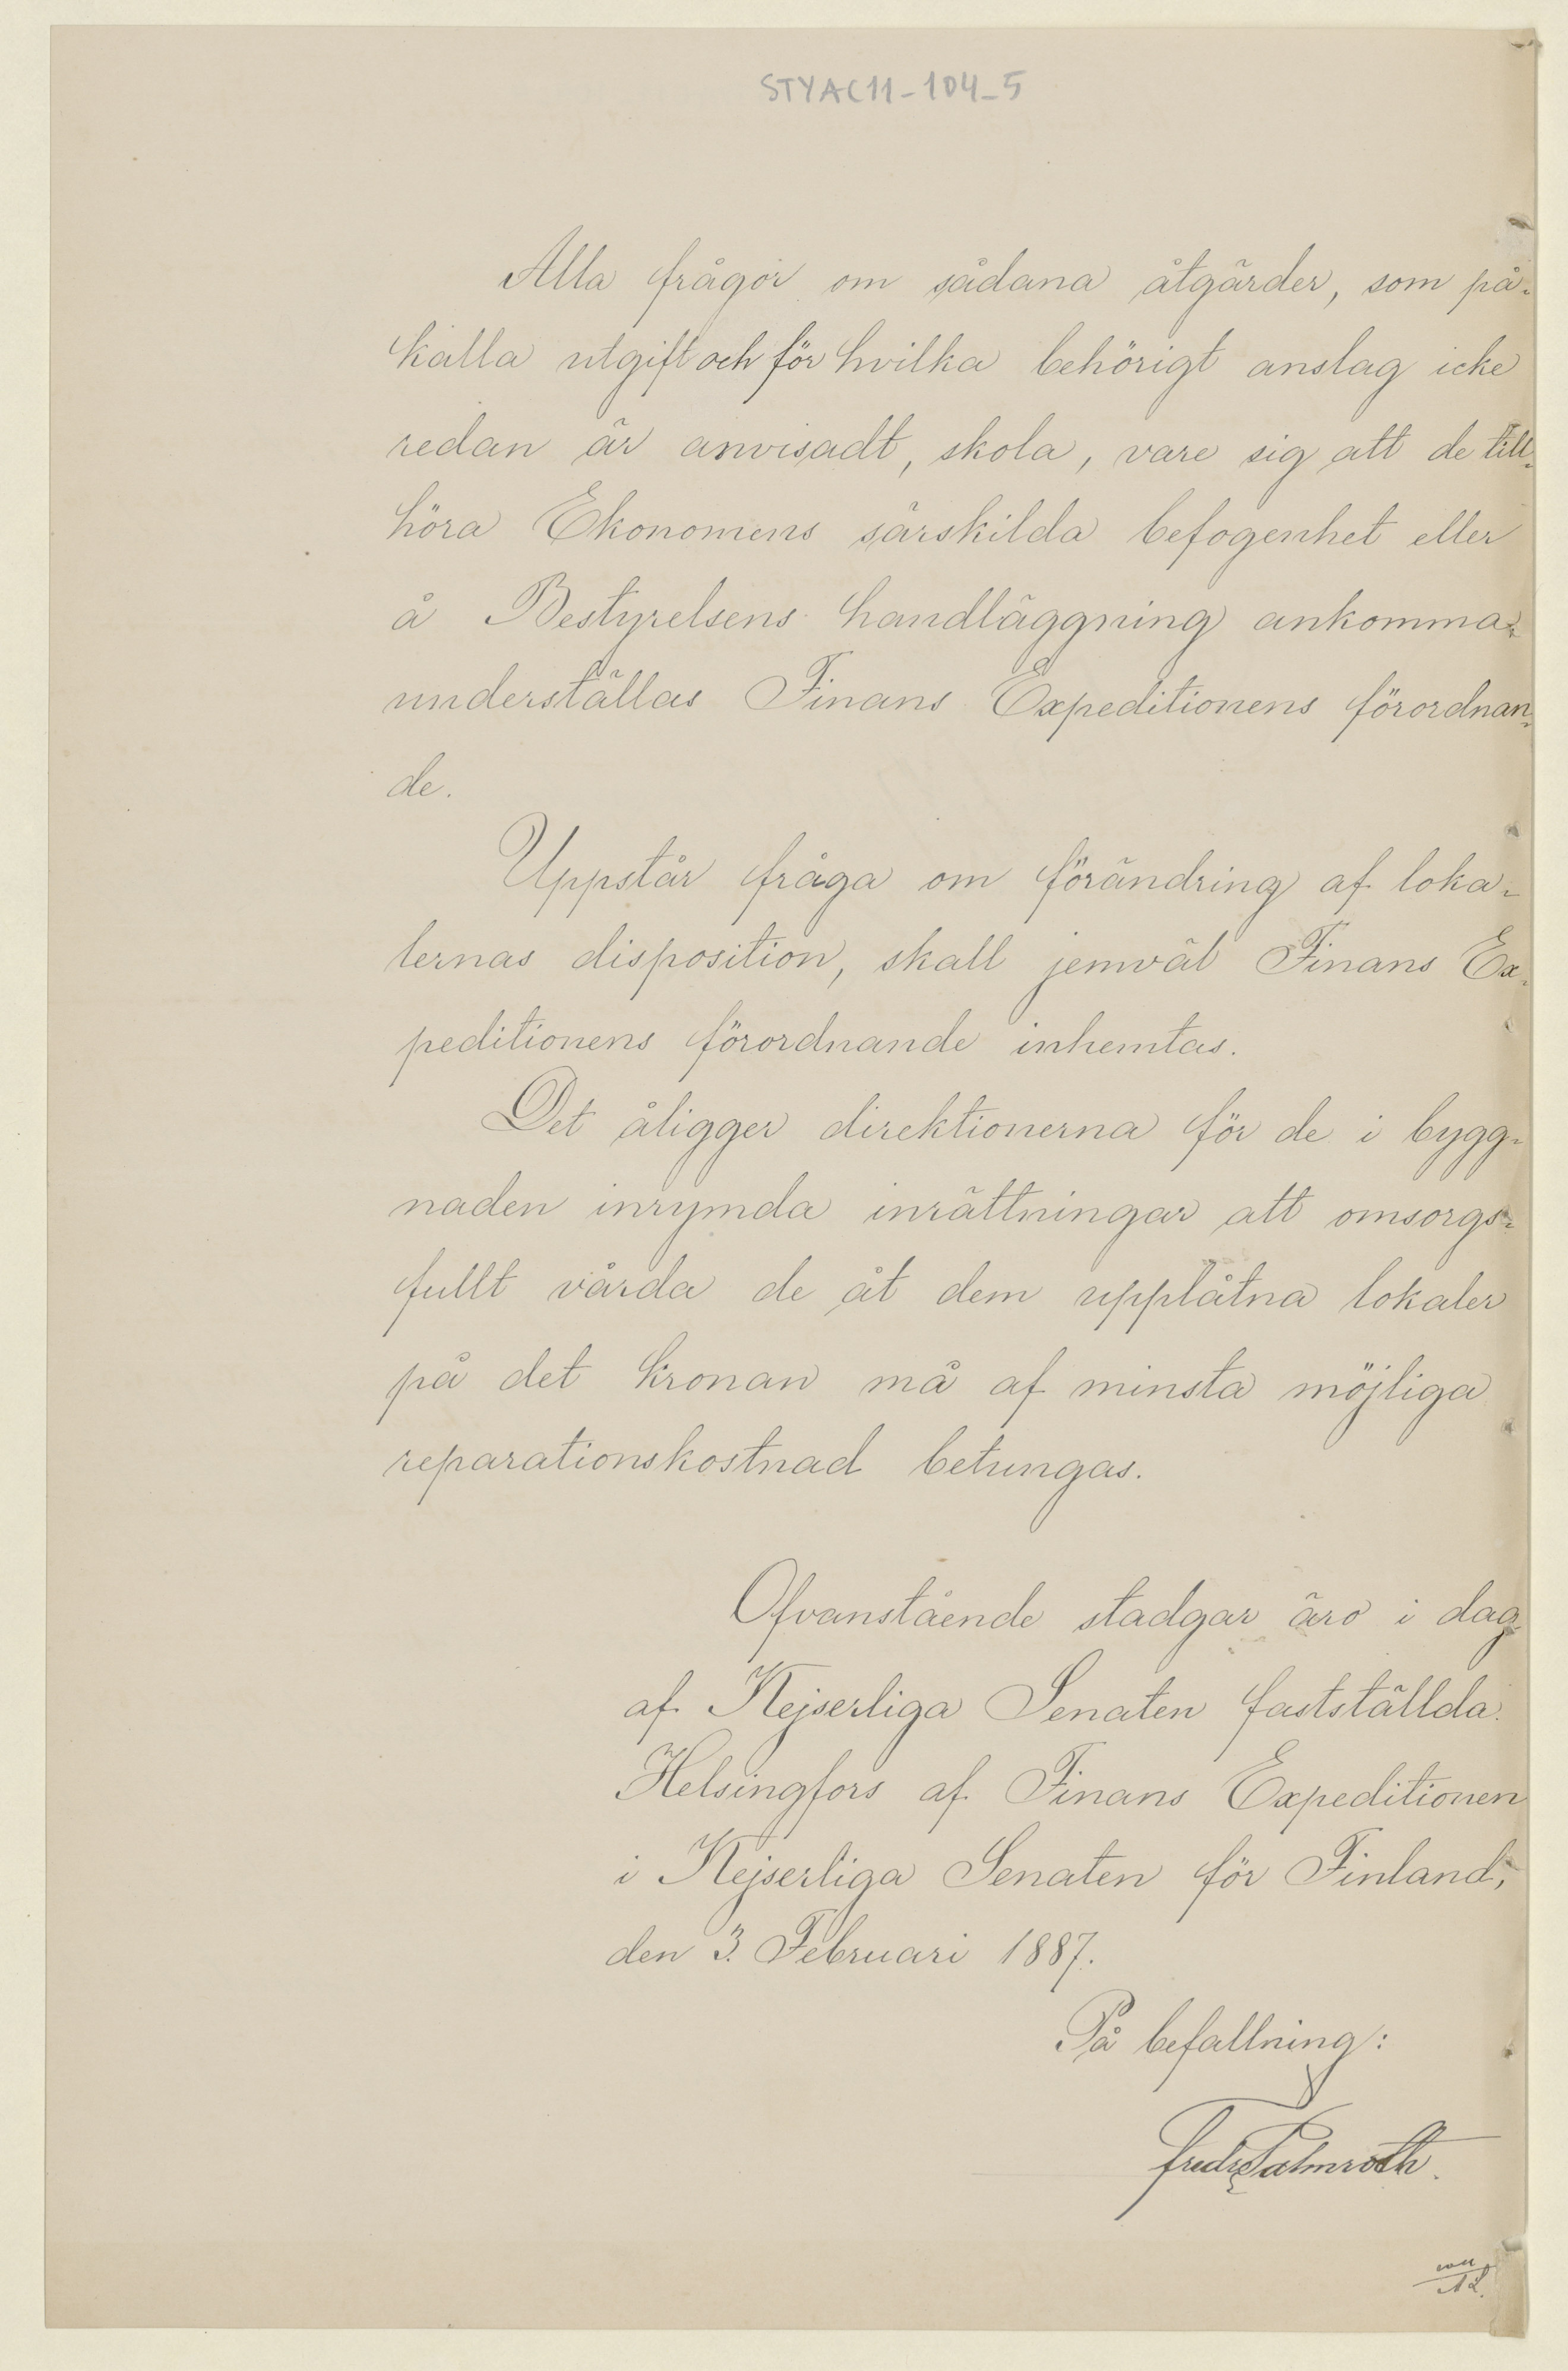 STYAC11-104-5
Alla frågor om sådana åtgärder, som på-
kalla utgift och för hvilka behörigt anslag icke
redan är anvisadt, skola, vare sig att de till-
höra Ekonomens särskilda befogenhet eller
å Bestyrelsens handläggning ankomma,
underställas Finans Expeditionens förordnan-
de.
Uppstår fråga om förändring af loka-
lernas disposition, skall jemväl Finans Ex-
peditionens förordnande inhemtas.
Det åligger direktionerna för de i bygg-
naden inrymda inrättningar att omsorgs-
fullt vårda de åt dem upplåtna lokaler
på det kronan må af minsta möjliga
reparationskostnad betungas.
Ofvanstående stadgar äro i dag
af Kejserliga Senaten fastställda.
Helsingfors af Finans Expeditionen
i Kejserliga Senaten för Finland,
den 3. Februari 1887.
På befallning:
Palmroth.